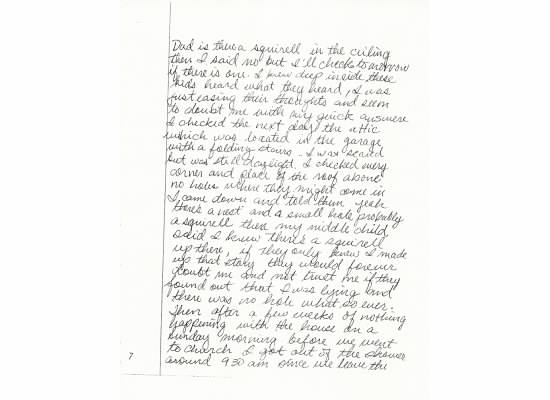 Dad is there a squirell in the ceiling
then I said no but I'll check tomorrow
if there is one. I knew deep inside these
kids heard what they heard, I was
just easing their thoughts and seem
to doubt me with my quick answere
I checked the next day the attic
which was located in the garage
with a folding stairs. I was scared
but was still daylight. I checked every
corner and place of the roof above
no holes where they might come in
I came down and told them yeah
there's a nest and a small hole probably
a squirell then my middle child
said I knew there's a squirell
up there, if they only knew I made
up that story they would forever
doubt me and not trust me if they
found out that I was lying and
there was no hole what so ever.
Then after a few weeks of nothing
happening with the house on a
sunday morning before we went
to church I got out of the shower
around 9 30 am since we leave the
7